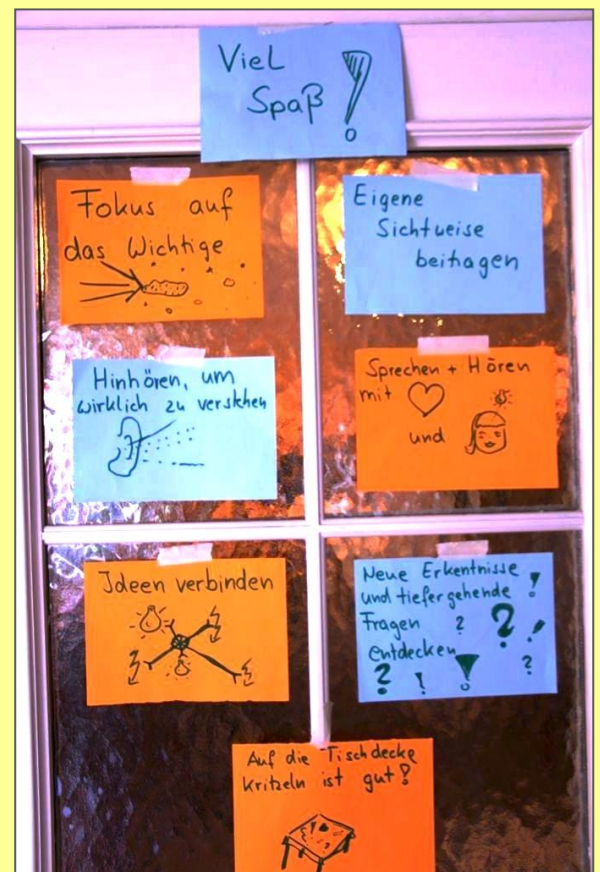 Viel
Spaß!
Fokus auf
das Wichtige
Eigene
Sichtweise
beitragen
Hinhören, um
wirklich zu verstehen
Sprechen + Hören
mit
und
Ideen verbinden
Neue Erkentnisse !
und tiefer gehende
Fragen ? ? !
entdecken
? ! ! ?
Auf die Tischdecke
kritzeln ist gut!